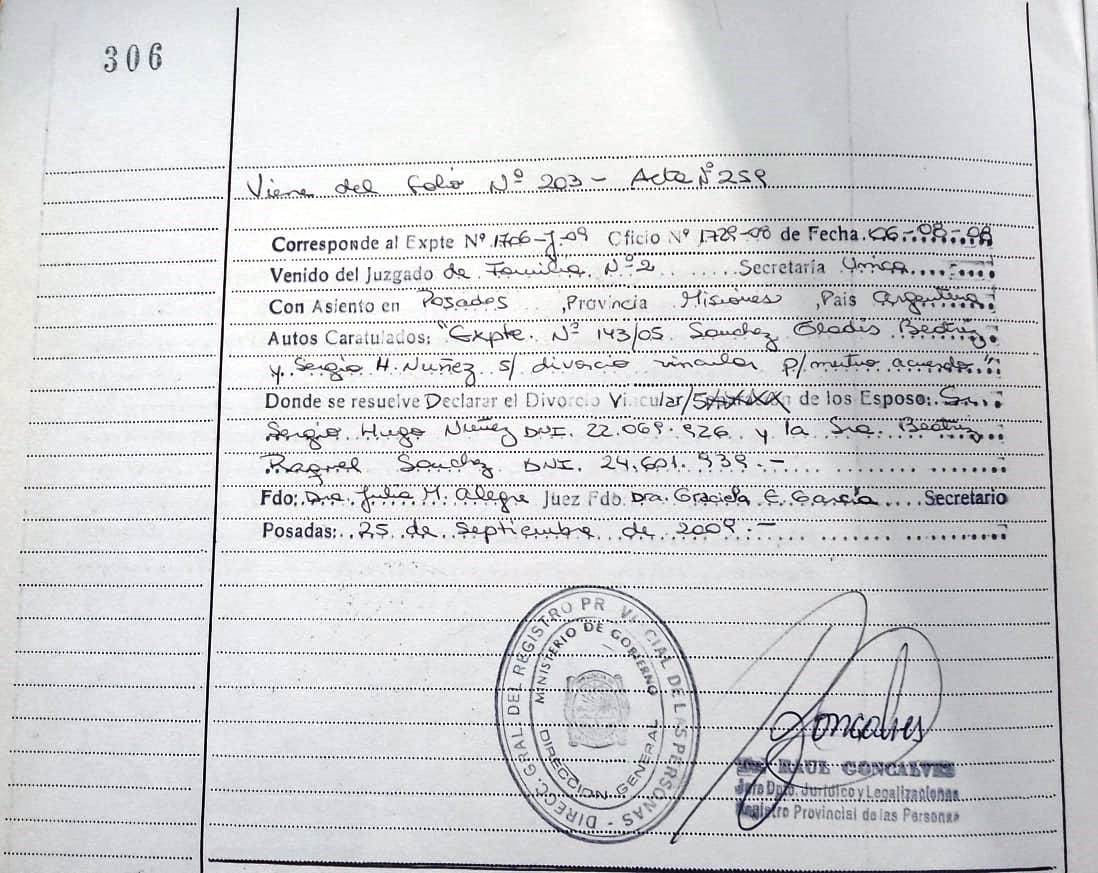 306
Viene del folio Nº 203 - Acta Nº 259
Corresponde al Expte Nº 1706-J-09 Oficio Nº 1729-08 de Fecha. 06-08-08
Venido del Juzgado de Familia Nº 2 Secretaría Unica
Con Asiento en Posadas, Provincia Misiones, País Argentina
Autos Caratulados: "Expte. Nº 143/05 Sanchez Gladis Beatriz
y Sergio H. Nuñez s/ divorcio vincular p/mutuo acuerdo"
Donde se resuelve Declarar el Divorcio Vincular/ de los Esposo: Sr.
Sergio Hugo Nuñez DNI. 22.069.926 y la Sra Beatriz
Raquel Sanchez DNI. 24.601.939.-
Fdo: Dra. Julia M. Alegre Juez Fdo. Dra. Graciela E. García Secretario
Posadas: 25 de Septiembre de 2009.-
DIRECC. GRAL. DEL REGISTRO PROVINCIAL DE LAS PERSONAS -
MINISTERIO DE GOBIERNO
DIRECCION GENERAL
Goncalves
RAUL GONCALVES
Jefe Dpto. Jurídico y Legalizaciones
Registro Provincial de las Personas